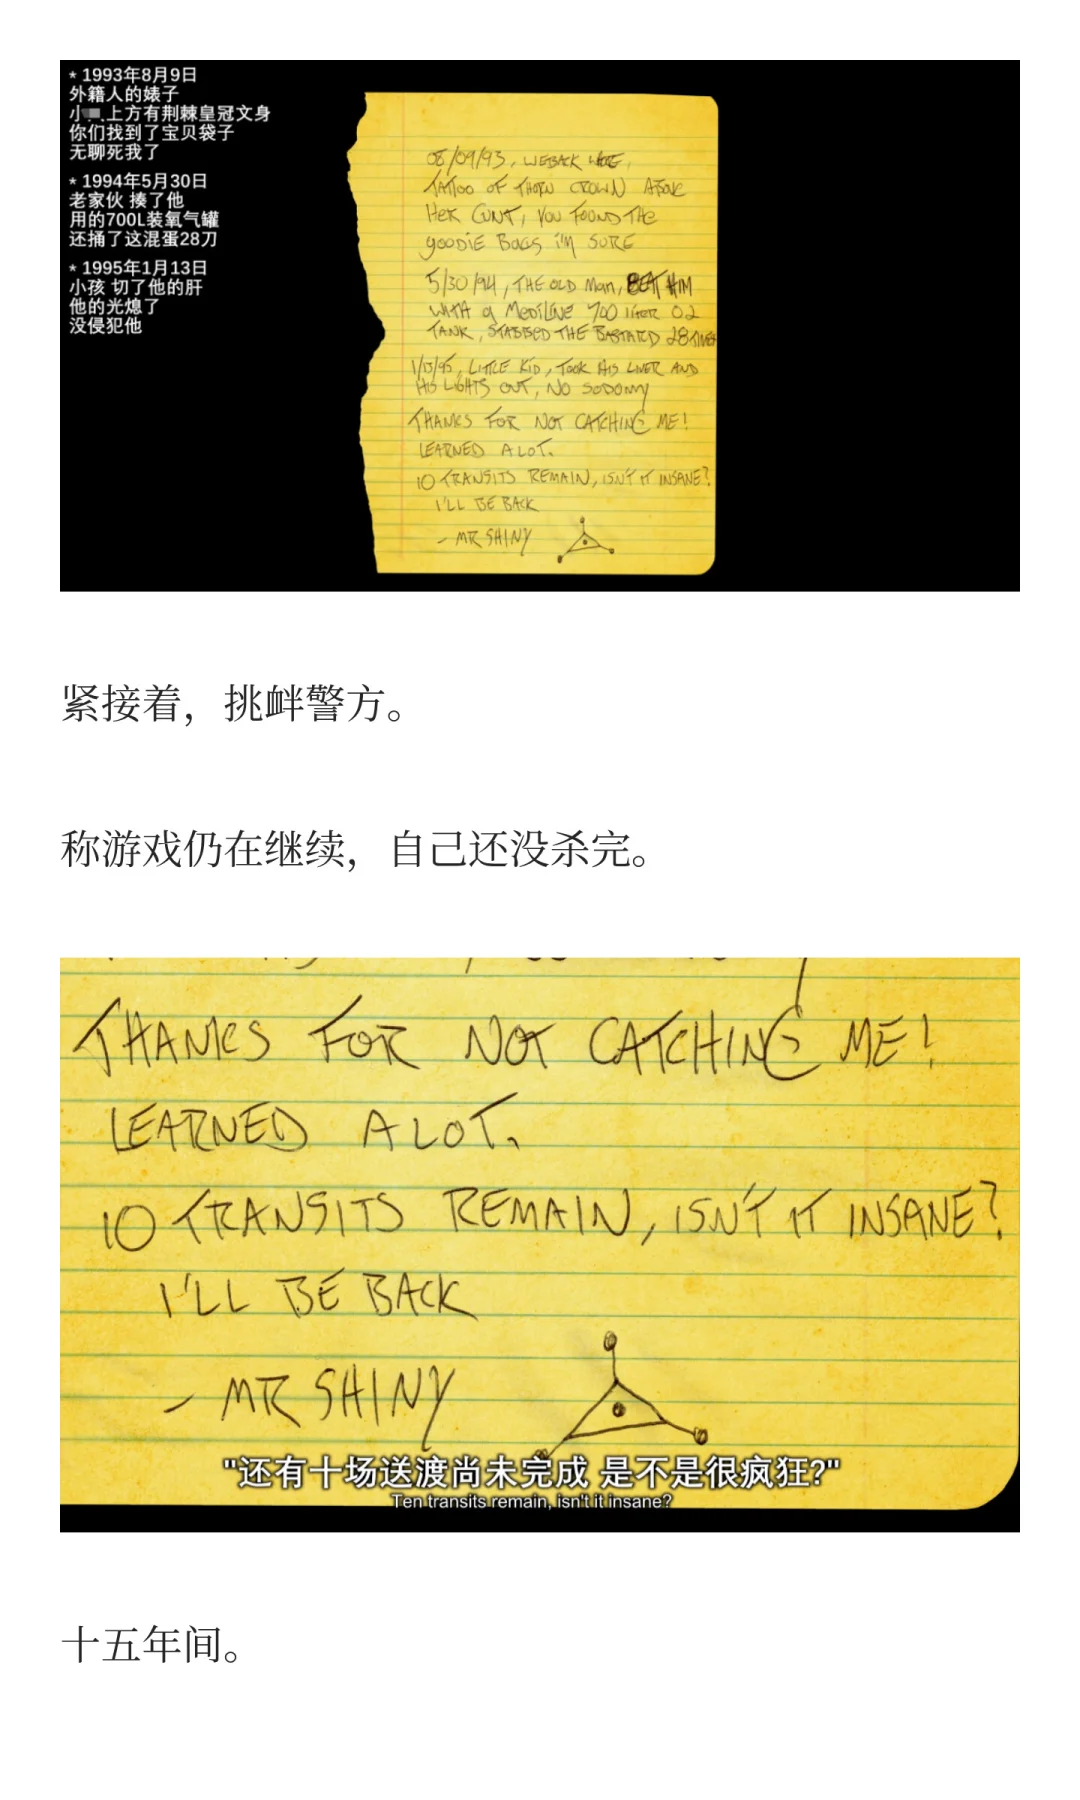 * 1993年8月9日
外籍人的婊子
小 上方有荆棘皇冠文身
你们找到了宝贝袋子
无聊死我了
* 1994年5月30日
老家伙 揍了他
用的700L装氧气罐
还捅了这混蛋28刀
* 1995年1月13日
小孩 切了他的肝
他的光熄了
没侵犯他
08/09/93, WEBACK WORE,
TATTOO OF THORN CROWN ABOVE
HER CUNT, YOU FOUND THE
GOODIE BAGS I'M SURE
5/30/94, THE OLD MAN, BEAT HIM
WITH A MEDILINE 700 LITER O2
TANK, STABBED THE BASTARD 28 TIMES
1/13/95, LITTLE KID, TOOK HIS LIVER AND
HIS LIGHTS OUT, NO SODOMY
THANKS FOR NOT CATCHING ME!
LEARNED A LOT.
10 TRANSITS REMAIN, ISN'T IT INSANE?
I'LL BE BACK
- MR SHINY
紧接着，挑衅警方。
称游戏仍在继续，自己还没杀完。
THANKS FOR NOT CATCHING ME!
LEARNED A LOT.
10 TRANSITS REMAIN, ISN'T IT INSANE?
I'LL BE BACK
- MR SHINY
"还有十场送渡尚未完成 是不是很疯狂?"
Ten transits remain, isn't it insane?
十五年间。